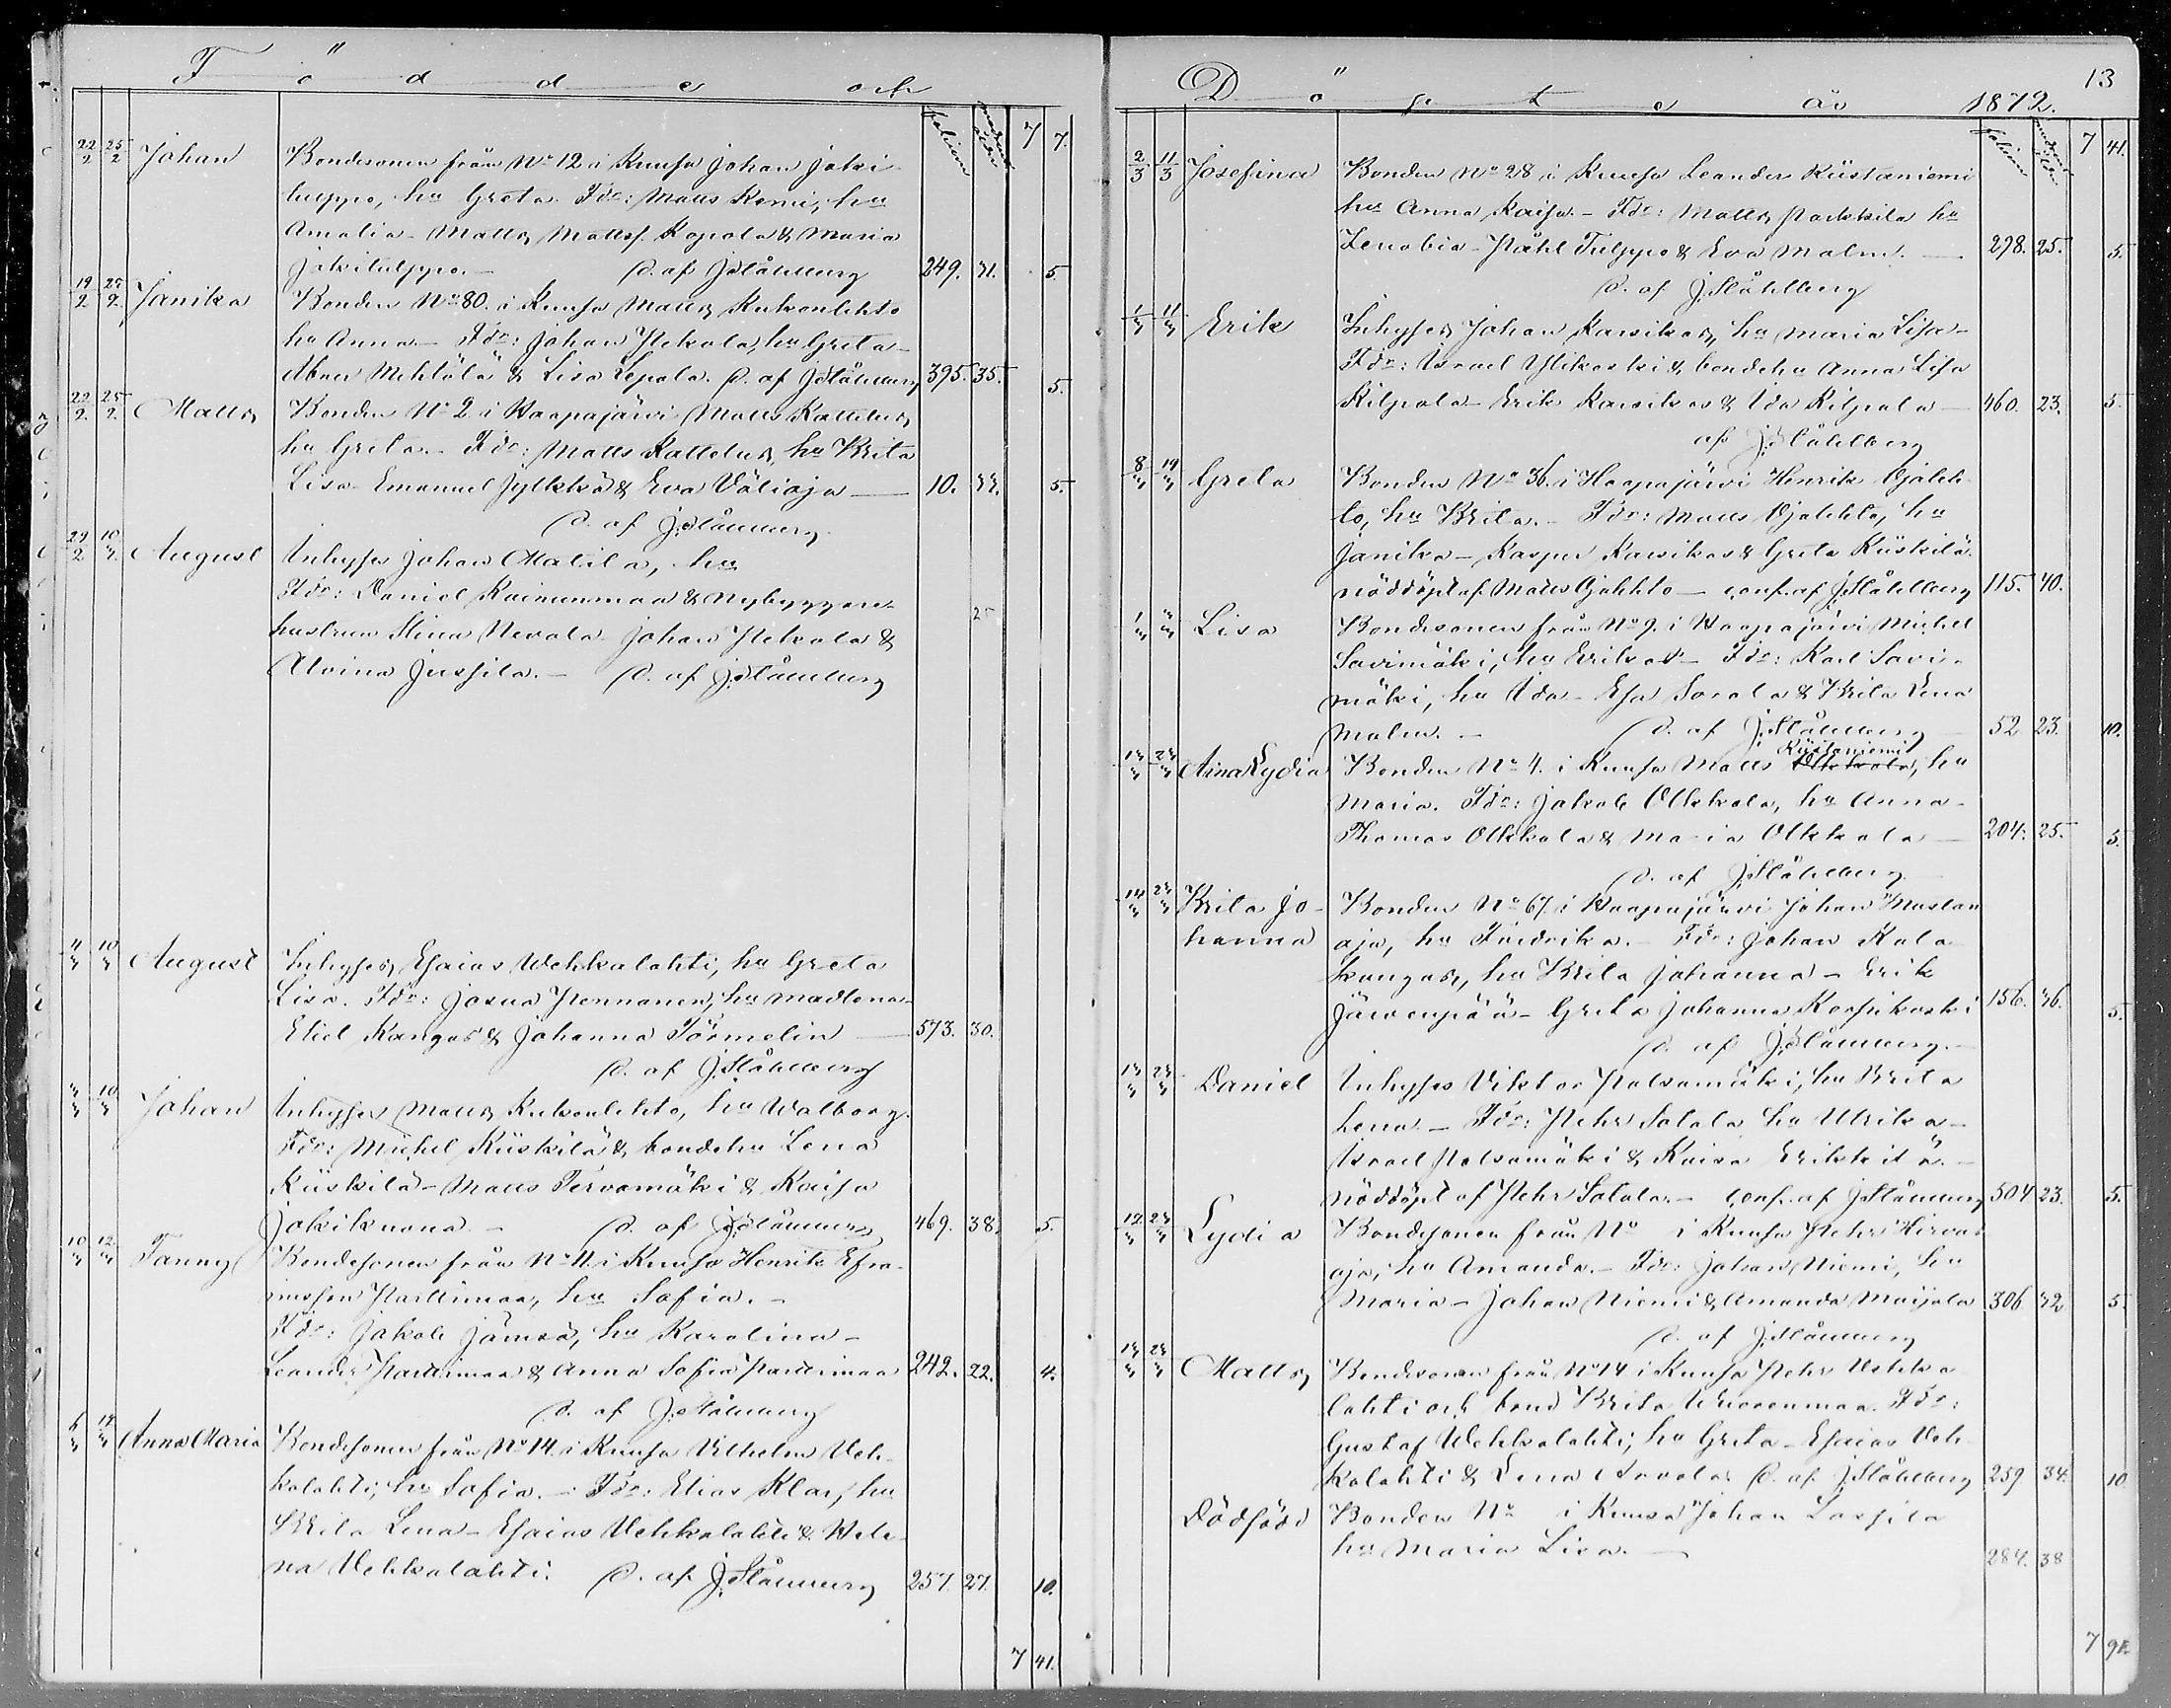 Födde och
folium moderns ålder 7 7.
22/2 25/2 Johan Bondesonen från No 12 i Kuusa Johan Joki-
tulppo, hu Greta. Fdr: Matts Remi, hu
Amalia - Matts Mattss. Kopola & Maria
Jokitulppo. - D. af J. Ståhlberg 249. 31. 5.
19/2 25/2. Janika Bonden No 80. i Kuusa Matts Kukonlehto
hu Anna - Fdr: Johan Pekola, hu Greta -
Abner Mehtälä & Lisa Lepola. D. af J. Ståhlberg 395. 35. 5.
22/2. 25/2. Matts Bonden No 2 i Haapajärvi Matts Kattelus,
hu Greta. - Fdr: Matts Kattelus, hu Brita
Lisa - Emanuel Jylkkä & Eva Väliaja — 10. 33. 5.
D. af J. Ståhlberg.
29/2 10/3. August Inhyses Johan Matila, hu
Fdr: Daniel Kainunmaa & Nybyggare-
hustrun Stina Nevala - Johan Pekola & 25
Alvina Jussila. - D. af J. Ståhlberg
4/3 10/3 August Inhyses, Esaias Wehkalahti, hu Greta
Lisa. Fdr: Josua Pennanen, hu Madlena -
Eliel Kangas & Johanna Törmelin — 573. 30.
D. af J. Ståhlberg
3/3 10/3 Johan Inhyses Matts Kukonlehto, hu Walborg.
Fdr: Michel Kiiskilä & bondehu Lena
Kiiskilä - Matts Tervamäki & Kaisa
Jokiknona. - D. af J. Ståhlberg 469. 38. 5.
10/3 12/3 Fanny Bondesonen från No 11. i Kuusa Henrik Efra-
imsson Parttimaa, hu Sofia. -
Fdr: Jakob Jämsä, hu Karolina -
Leander Parttimaa & Anna Sofia Parttimaa 242. 22. 4.
D. af J. Ståhlberg
Anna Maria Bondesonen från No 14. i Kuusa Vilhelm Veh-
kalahti, hu Sofia. - Fdr: Elias Klas, hu
Brita Lena - Esaias Vehkalahti & Hele-
na Vehkalahti. D. af J. Ståhlberg 257. 27. 10.
7 41.
Döpte år 1872. 13
folium moderns ålder 7 41.
2/3 11/3 Josefina Bonden No 28 i Kuusa Leander Kiistaniemi
hu Anna Kaisa. - Fdr: Matts Parkkila hu
Zenobia - Påhl Tulppo & Eva Malm. — 298. 25. 5.
D. af J. Ståhlberg
1/3 11/3 Erik Inhyses Johan Karsikas, hu Maria Lisa -
Fdr: Israel Ylikoski & bondehu Anna Lisa
Kilpala - Erik Karsikas & Ida Kilpala — 460. 23. 5.
af J. Ståhlberg
8/3 19/3 Greta Bonden No 36. i Haapajärvi Henrik Ojaleh-
to, hu Brita. - Fdr: Matts Ojalehto, hu
Janika - Kasper Karsikas & Greta Kiiskilä.
nöddöpt af Matts Ojalehto — conf. af J. Ståhlberg 115. 40.
Lisa Bondesonen från No 9. i Haapajärvi Michel
Savimäki, hu Erika - Fdr: Karl Savi-
mäki, hu Ida - Esa Sorola & Brita Lena
Malm. - D. af J. Ståhlberg 52 23. 10.
Kiistaniemi
Aina Lydia Bonden No 4. i Kuusa Matts Olkkola, hu
Maria. Fdr: Jakob Olkkola, hu Anna -
Thomas Olkkola & Maria Olkkola — 204. 25. 5.
D. af J. Ståhlberg.
14/3 23/3 Brita Jo- Bonden No 67. i Haapajärvi Johan Mustan-
hanna oja, hu Fredrika. - Fdr: Johan Kala-
kangas, hu Brita Johanna - Erik
Järvenpää - Greta Johanna Korpikoski 156. 36. 5.
D. af J. Ståhlberg. -
Daniel Inhyses Viktor Palsamäki, hu Brita
Lena - Fdr: Pehr Salala hu Ulrika -
Israel Palsamäki & Kaisa Erikkilä. -
nöddöpt af Pehr Salala. - conf. af J. Ståhlberg 504 23. 5.
Lydia Bondesonen från No i Kuusa Pehr Hirvas-
oja, hu Amanda. - Fdr: Johan Niemi, hu
Maria - Johan Niemi & Amanda Maijala 306. 32 5.
D. af J. Ståhlberg
Matts Bondesonen från No 14 i Kuusa Pehr Vehka-
lahti och brud Brita Wuorenmaa. Fdr:
Gustaf Wehkalahti, hu Greta - Esaias Veh-
kalahti & Lena Arvola. D. af J. Ståhlberg 259 34. 10.
Dödfödd Bonden No i Kuusa Johan Lassila
hu Maria Lisa. — 284. 38
7 91.